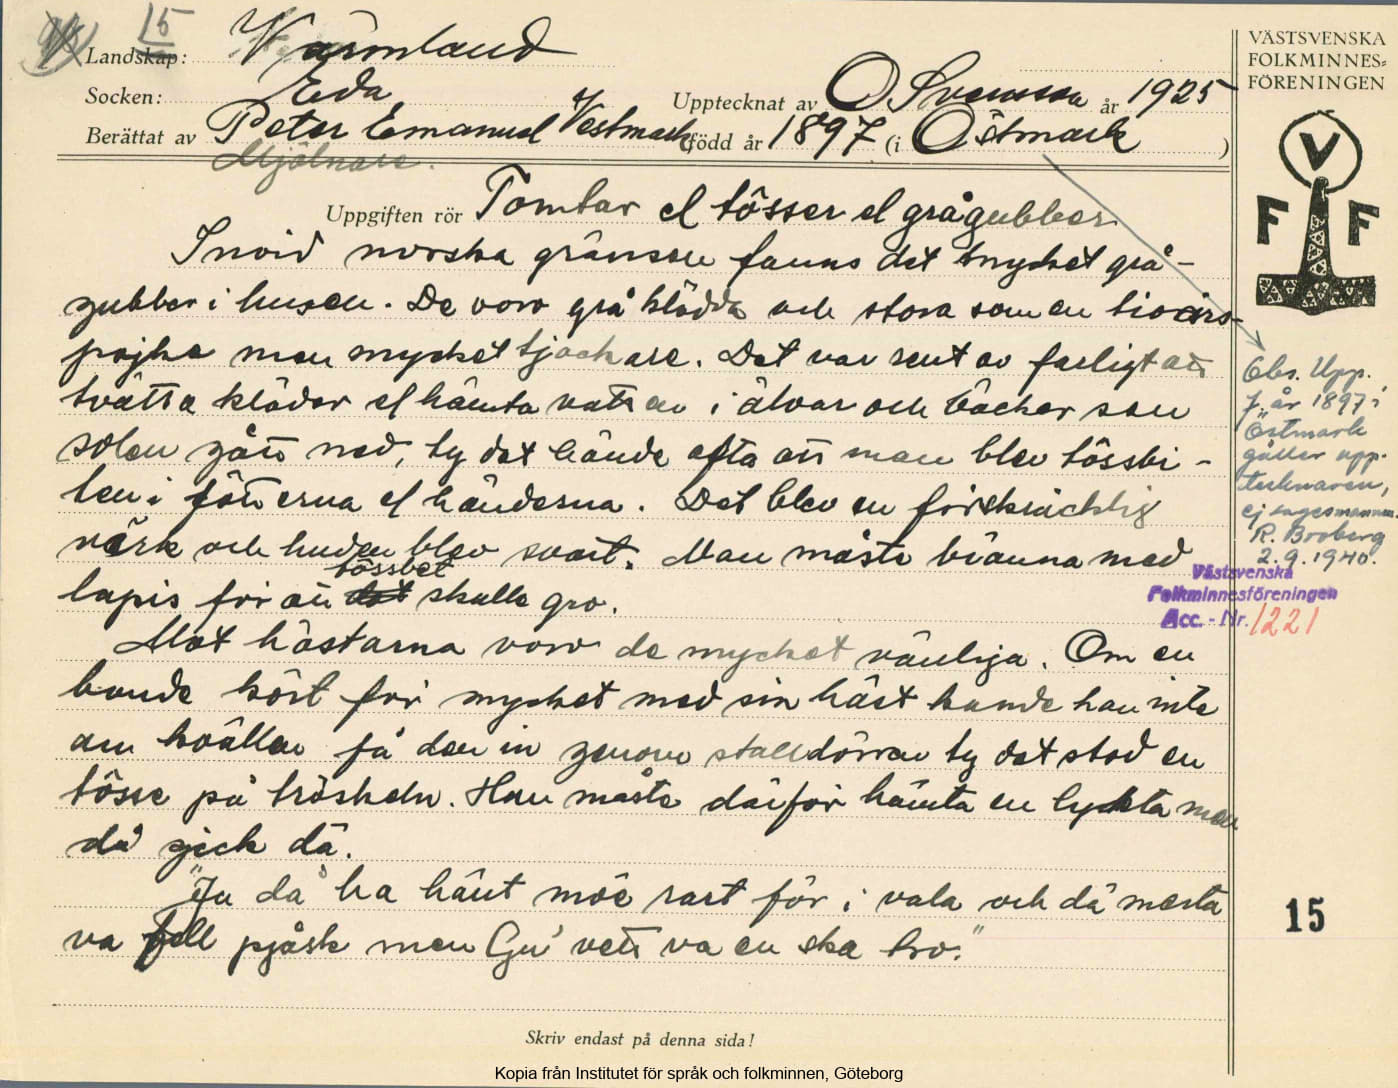 15
Landskap: Värmland
VÄSTSVENSKA
FOLKMINNES=
FÖRENINGEN
Socken: Eda
Upptecknat av O Svensson år 1925
Berättat av Peter Emanuel Vestmark född år 1897 (i Östmark )
Mjölnare.
V
F F
Uppgiften rör Tomtar el tösser el grågubber
Invid norska gränsen fanns det mycket grå-
gubber i husen. De voro grå klädda och stora som en tioårs
pojke men mycket tjockare. Det var sent av farligt att
tvätta kläder el hämta vatten i älvar och bäcker sen
solen gått ned, ty det hände ofta att man blev tössbi-
ten i fötterna el händerna. Det blev en förskräcklig
värk och huden blev svart. Man måste bränna med
lapis för att det tössbet skulle gro.
Mot hästarna voro de mycket vänliga. Om en
bonde kört för mycket med sin häst kunde han inte
om kvällen få den in genom stalldörren ty det stod en
tösse på tröskeln. Han måste därför hämta en lyckta men
då gick dä.
"Ja da ha hänt möe rart för i vala och dä mesta
va fell pjåsk men Gu' vett va en ska tro."
Obs. Upp.
f. år 1897 i
Östmark
gäller upp-
tecknaren,
ej sagesmannen.
R. Broberg
2.9.1940.
Västsvenska
Folkminnesföreningen
Acc. - Nr. 1221
15
Skriv endast på denna sida!
Kopia från Institutet för språk och folkminnen, Göteborg